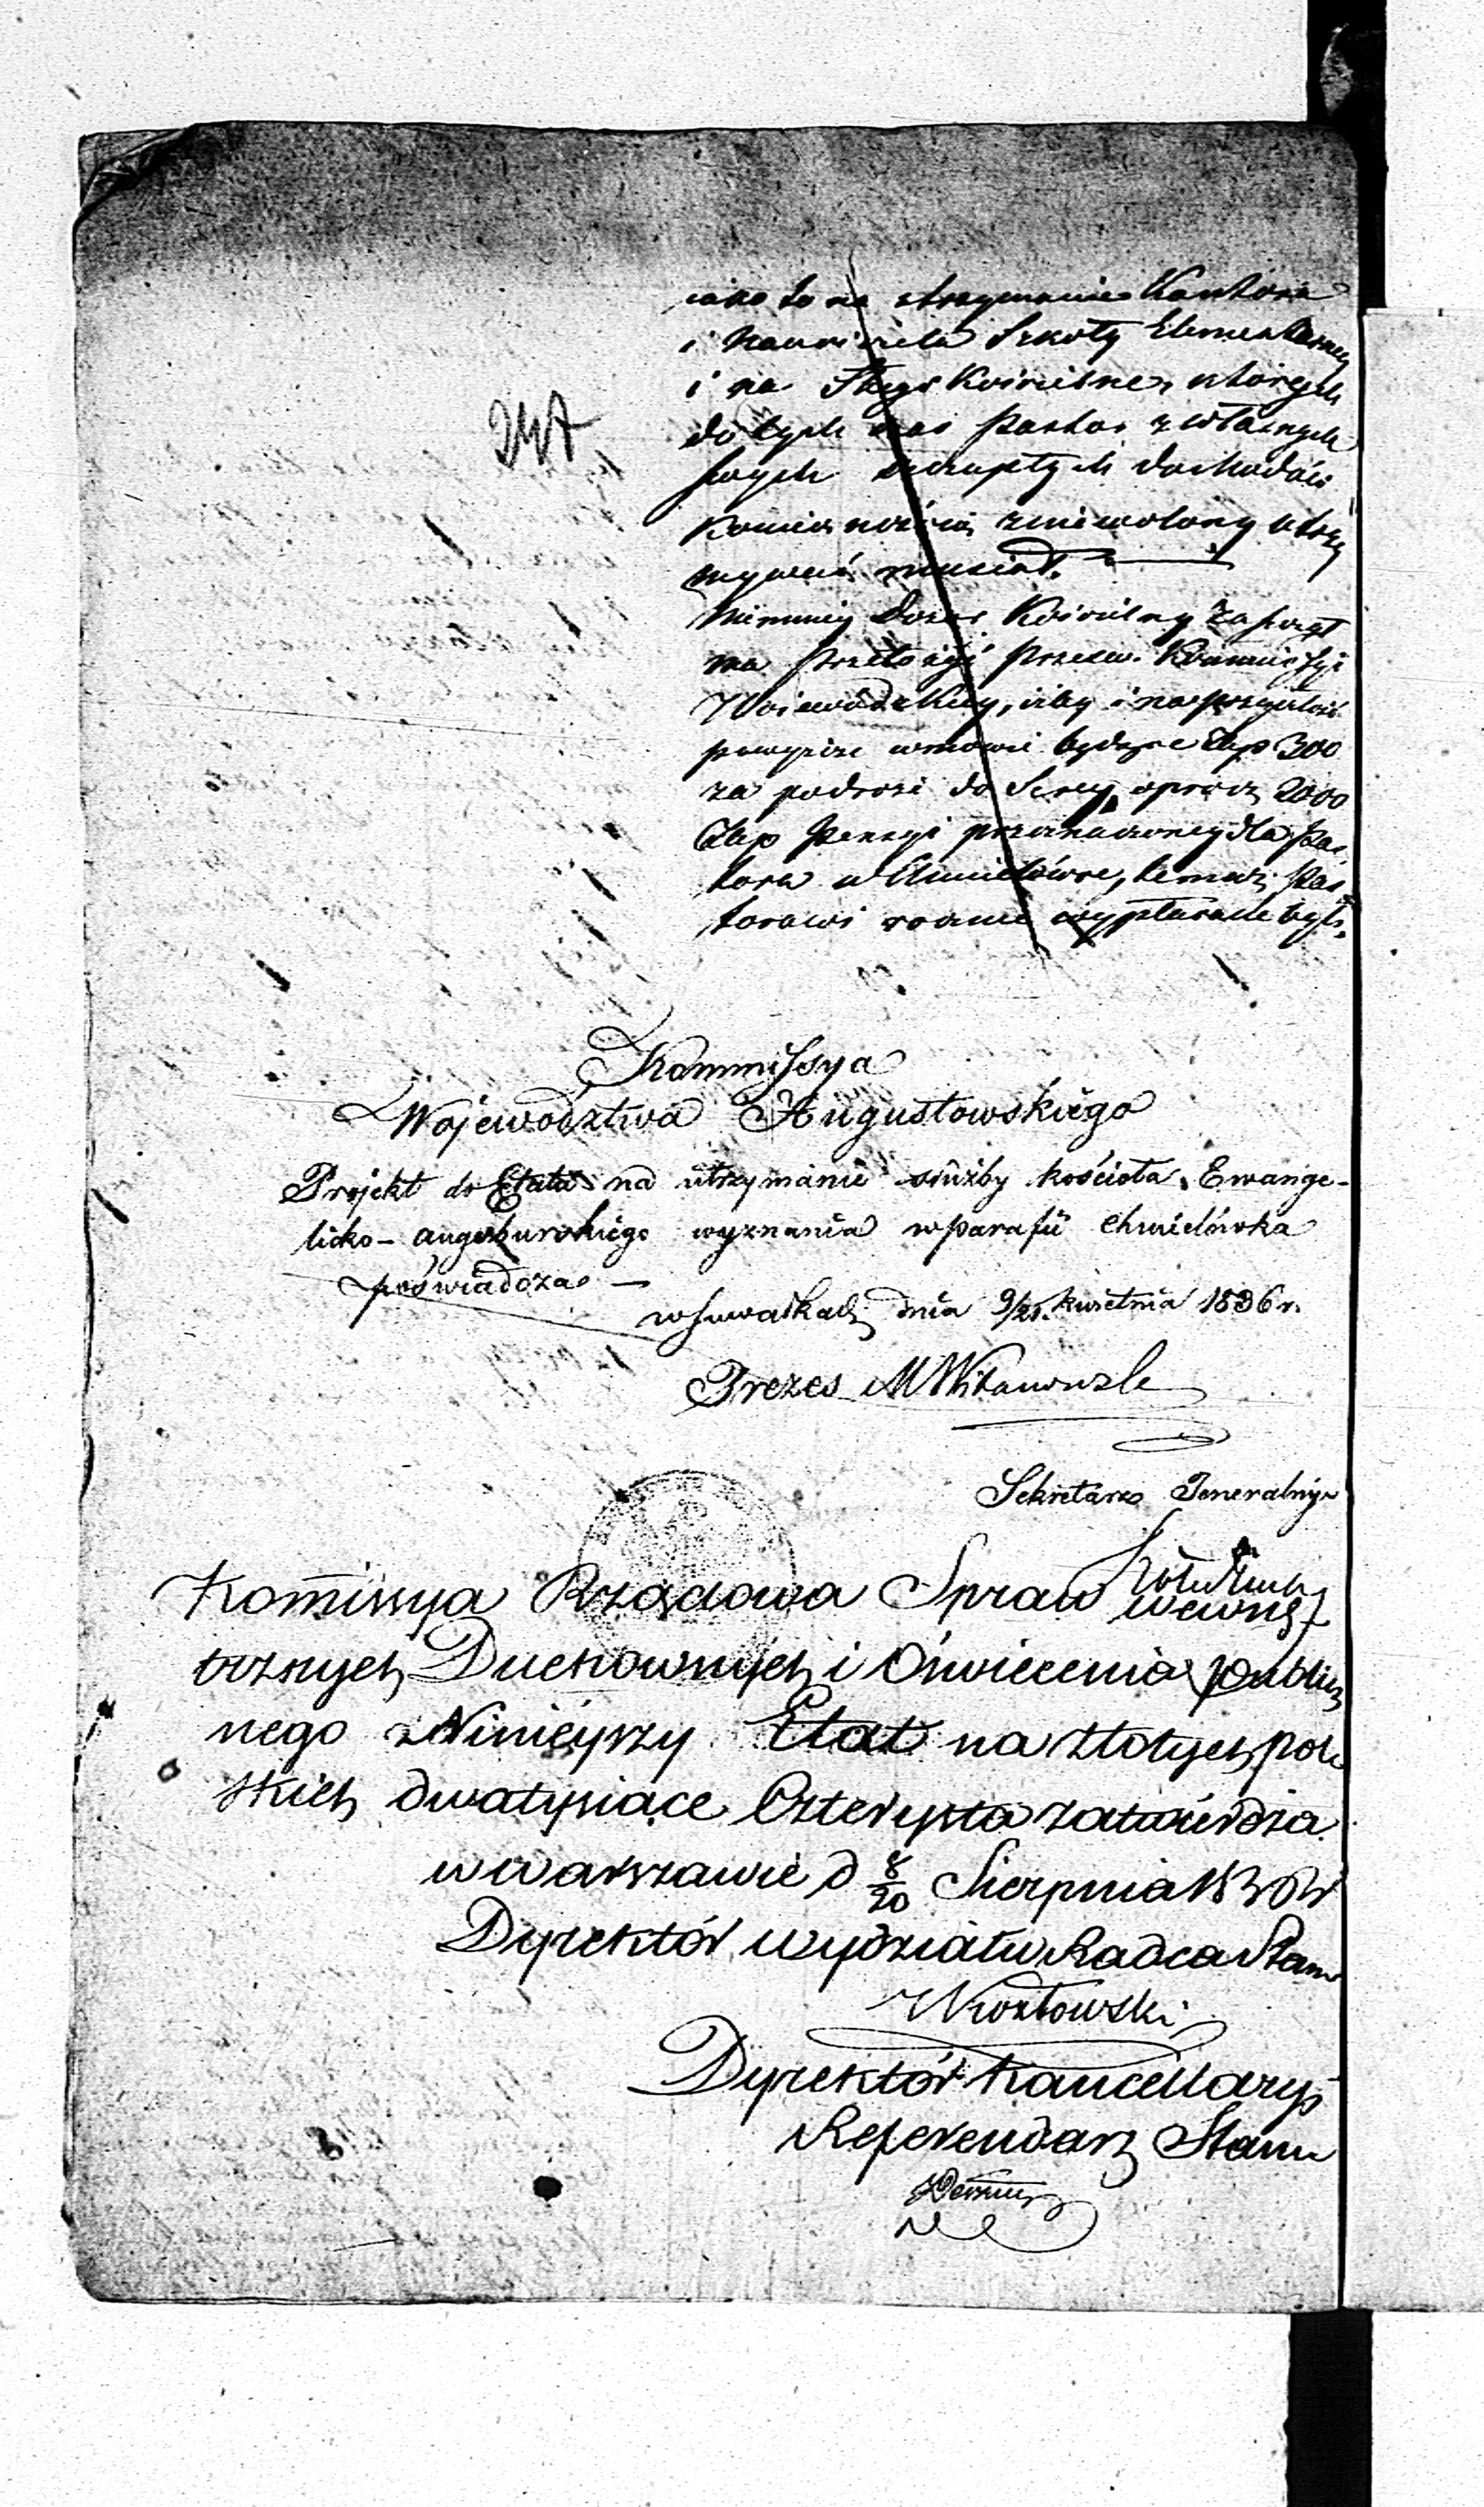 iako to na utrzymanie Kantora
i Nauczyciela Szkoły Elementarney
i na Sługi Kościelne, których
do tych czas Pastor z własnych
swych szczupłych dochodów
koniecznością zniewolony utrzy
mywać musiał.
Niemniey Dozór Kościelny zaszczyt
ma przełożyć Przesw. Kommissyi
Woiewódzkiey, iżby i na przyszłość
powyższe w mowie będące Złp 300
za podróże do Serey, oprócz 2000
Złp Pensyi przeznaczoney dla Pas
tora w Chmielówce, temuż Pas
torowi wypłacane były.
247
Kommissya
Województwa Augustowskiego
Projekt do Etatu na utrzymanie służby kościoła Ewange-
licko-augsburskiego wyznania w parafii Chmielówka
poświadcza —
w Suwałkach dnia 9/21. kwietnia 1836 r.
Prezes
Sekretarz Jeneralny
Kommissya Rządowa Spraw wewnę
trznych Duchownych i Oświecenia publicz
nego Ninieyszy Etat na złotych pol
skich dwatysiące Czterysta zatwierdza.
w Warszawie d 8/20 Sierpnia 1836 r
Dyrektór wydziału Radca Stanu
Kozłowski
Dyrektór Kancellaryi
Referendarz Stanu